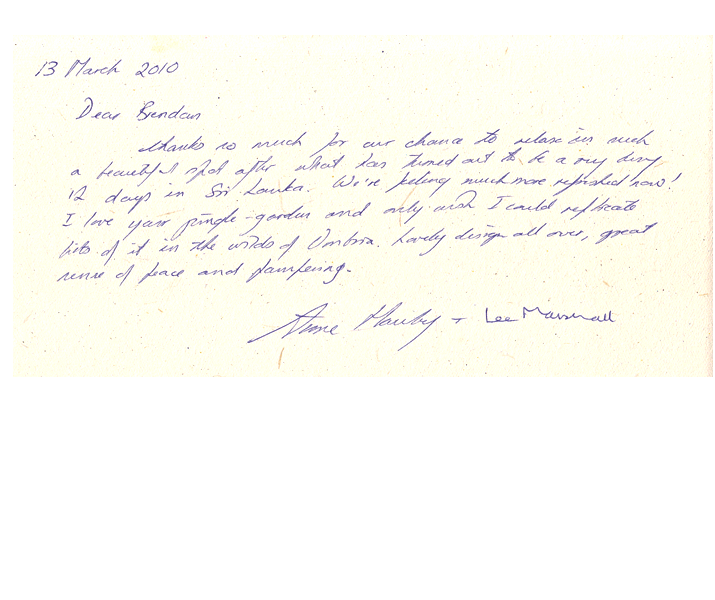 13 March 2010
Dear Brendan
thanks so much for our chance to relax in such
a beautiful spot after what has turned out to be a very busy
12 days in Sri Lanka. We're feeling much more refreshed now!
I love your jungle-garden and only wish I could replicate
bits of it in the wilds of Umbria. Lovely design all over, great
sense of peace and pampering.
Anne Hanby + Lee Marshall